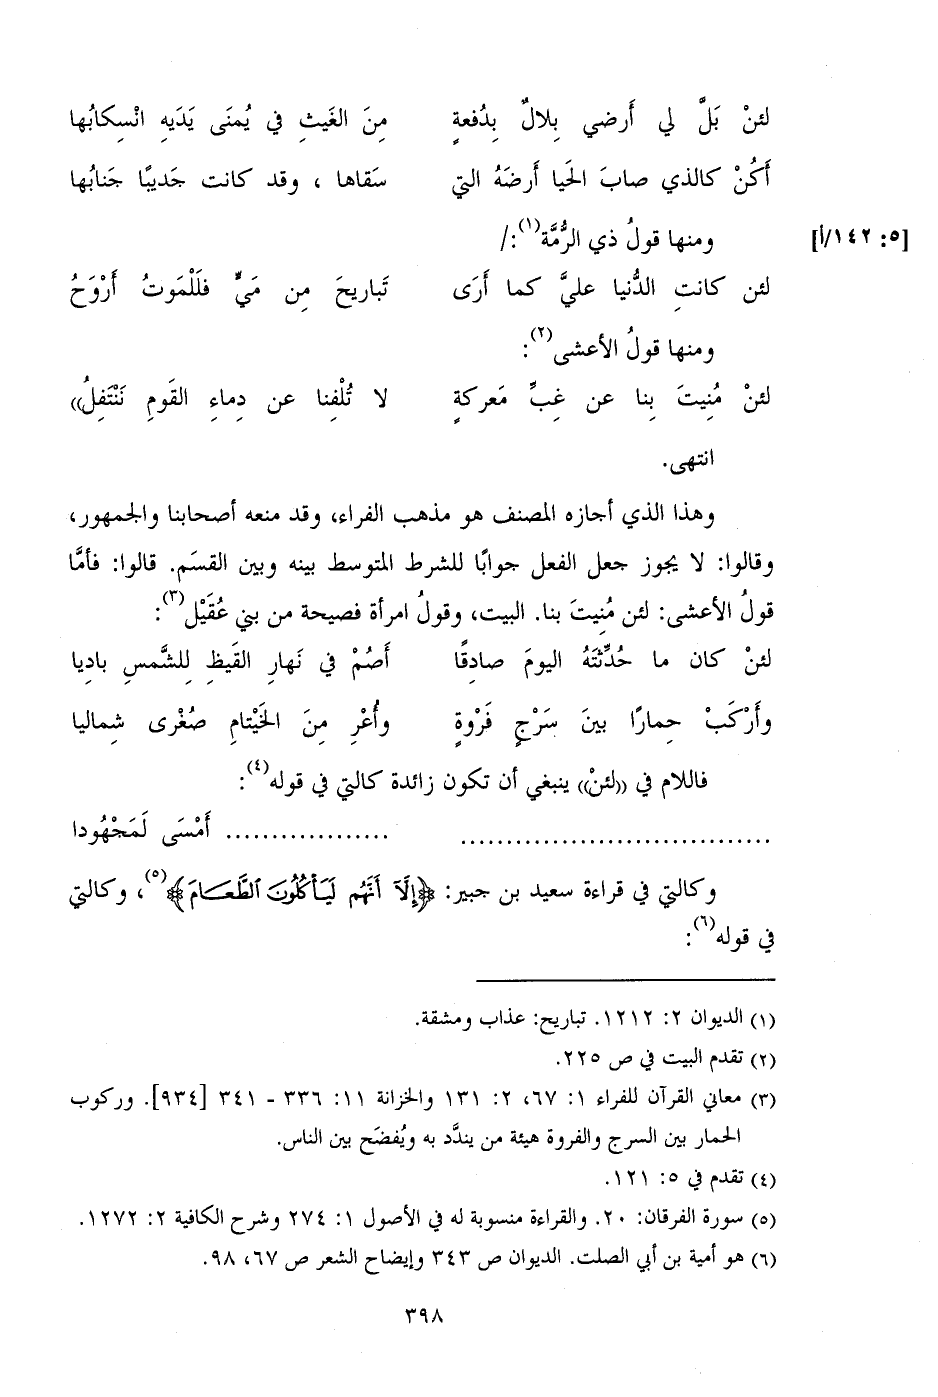 لئنْ بَلَّ لي أَرضي بِلالٌ بِدُفعةٍ مِنَ الغَيثِ في يُمنَى يَدَيهِ انْسِكابُها
أَكُنْ كالذي صابَ الحَيا أَرضَهُ التي سَقاها ، وقد كانت جَديبًا جَنابُها
ومنها قولُ ذي الرُّمَّة(١):/ [٥: ١٤٢/أ]
لئن كانتِ الدُّنيا عليَّ كما أَرَى تَباريحَ مِن مَيٍّ فلَلْمَوتُ أَرْوَحُ
ومنها قولُ الأعشى(٢):
لئنْ مُنِيتَ بِنا عن غِبِّ مَعركةٍ لا تُلْفِنا عن دِماءِ القَومِ نَنْتَفِلُ»
انتهى.
وهذا الذي أجازه المصنف هو مذهب الفراء، وقد منعه أصحابنا والجمهور،
وقالوا: لا يجوز جعل الفعل جوابًا للشرط المتوسط بينه وبين القسَم. قالوا: فأمَّا
قولُ الأعشى: لئن مُنِيتَ بنا. البيت، وقولُ امرأة فصيحة من بني عُقَيْل(٣):
لئنْ كان ما حُدِّثتَهُ اليومَ صادِقًا أَصُمْ في نَهارِ القَيظِ لِلشَّمسِ بادِيا
وأَرْكَبْ حِمارًا بينَ سَرْجٍ فَرْوةٍ وأُعْرِ مِنَ الخَيْتامِ صُغْرى شِماليا
فاللام في «لئنْ» ينبغي أن تكون زائدة كالتي في قوله(٤):
................................. .................. أَمْسَى لَمَجْهُودا
وكالتي في قراءة سعيد بن جبير: ﴿إِلَّآ أَنَّهُم لَيَأْكُلُونَ ٱلطَّعَامَ﴾(٥)، وكالتي
في قوله(٦):
(١) الديوان ٢: ١٢١٢. تباريح: عذاب ومشقة.
(٢) تقدم البيت في ص ٢٢٥.
(٣) معاني القرآن للفراء ١: ٦٧، ٢: ١٣١ والخزانة ١١: ٣٣٦ - ٣٤١ [٩٣٤]. وركوب
الحمار بين السرج والفروة هيئة من يندَّد به ويُفضَح بين الناس.
(٤) تقدم في ٥: ١٢١.
(٥) سورة الفرقان: ٢٠. والقراءة منسوبة له في الأصول ١: ٢٧٤ وشرح الكافية ٢: ١٢٧٢.
(٦) هو أمية بن أبي الصلت. الديوان ص ٣٤٣ وإيضاح الشعر ص ٦٧، ٩٨.
٣٩٨